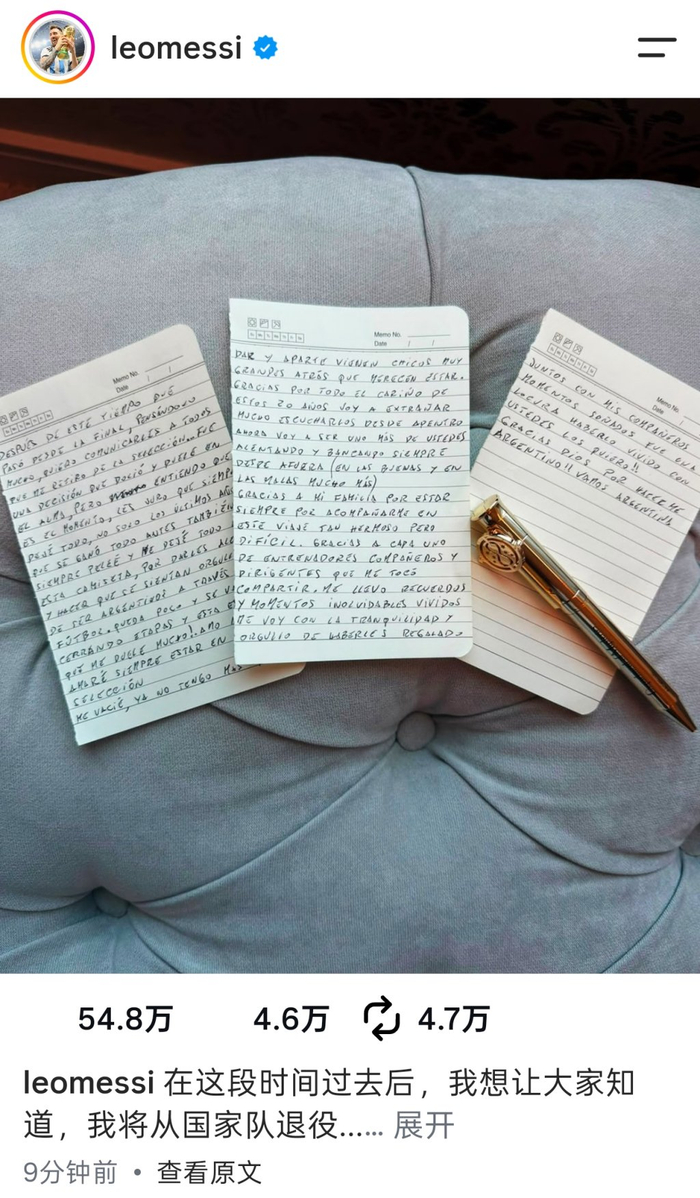 leomessi
Memo No.
Date / /
DESPUES DE ESTE TIEMPO QUE
PASÓ DESDE LA FINAL, PENSÁNDOLO
MUCHO, QUIERO COMUNICARLES A TODOS
QUE ME RETIRO DE LA SELECCIÓN. FUE
UNA DECISIÓN QUE DOLIÓ Y DUELE EN
EL ALMA PERO ENTIENDO QUE
ES EL MOMENTO. LES JURO QUE SIEMPRE
DEJÉ TODO, NO SOLO LOS ÚLTIMOS AÑOS
QUE SE GANÓ TODO ANTES TAMBIÉN
SIEMPRE PELEÉ Y ME DEJÉ TODO
ESTA CAMISETA, POR DARLES
Y HACER QUE SE SIENTAN
DE SER ARGENTINOS A TRAVÉS
FÚTBOL. QUEDA POCO Y SE
CERRANDO ETAPAS Y ESTA
QUE ME DUELE MUCHO! AMO
AMARÉ SIEMPRE ESTAR EN
SELECCIÓN
ME VACIÉ, YA NO TENGO
Memo No.
Date / /
DAR Y APARTE VIENEN CHICOS MUY
GRANDES ATRÁS QUE MERECEN ESTAR.
GRACIAS POR TODO EL CARIÑO DE
ESTOS 20 AÑOS VOY A EXTRAÑAR
MUCHO ESCUCHARLOS DESDE ADENTRO
AHORA VOY A SER UNO MÁS DE USTEDES
ALENTANDO Y BANCANDO SIEMPRE
DESDE AFUERA (EN LAS BUENAS Y EN
LAS MALAS MUCHO MÁS)
GRACIAS A MI FAMILIA POR ESTAR
SIEMPRE POR ACOMPAÑARME EN
ESTE VIAJE TAN HERMOSO PERO
DIFÍCIL. GRACIAS A CADA UNO
DE ENTRENADORES COMPAÑEROS Y
DIRIGENTES QUE ME TOCÓ
COMPARTIR. ME LLEVO RECUERDOS
Y MOMENTOS INOLVIDABLES VIVIDOS
ME VOY CON LA TRANQUILIDAD Y
ORGULLO DE HABERLES REGALADO
Memo No.
Date /
JUNTOS CON MIS COMPAÑEROS
MOMENTOS SOÑADOS FUE UNA
LOCURA HABERLO VIVIDO CON
USTEDES LOS QUIERO!!
GRACIAS DIOS POR HACERME
ARGENTINO!! VAMOS ARGENTINA
54.8万 4.6万 4.7万
leomessi 在这段时间过去后，我想让大家知
道，我将从国家队退役...... 展开
9分钟前 • 查看原文